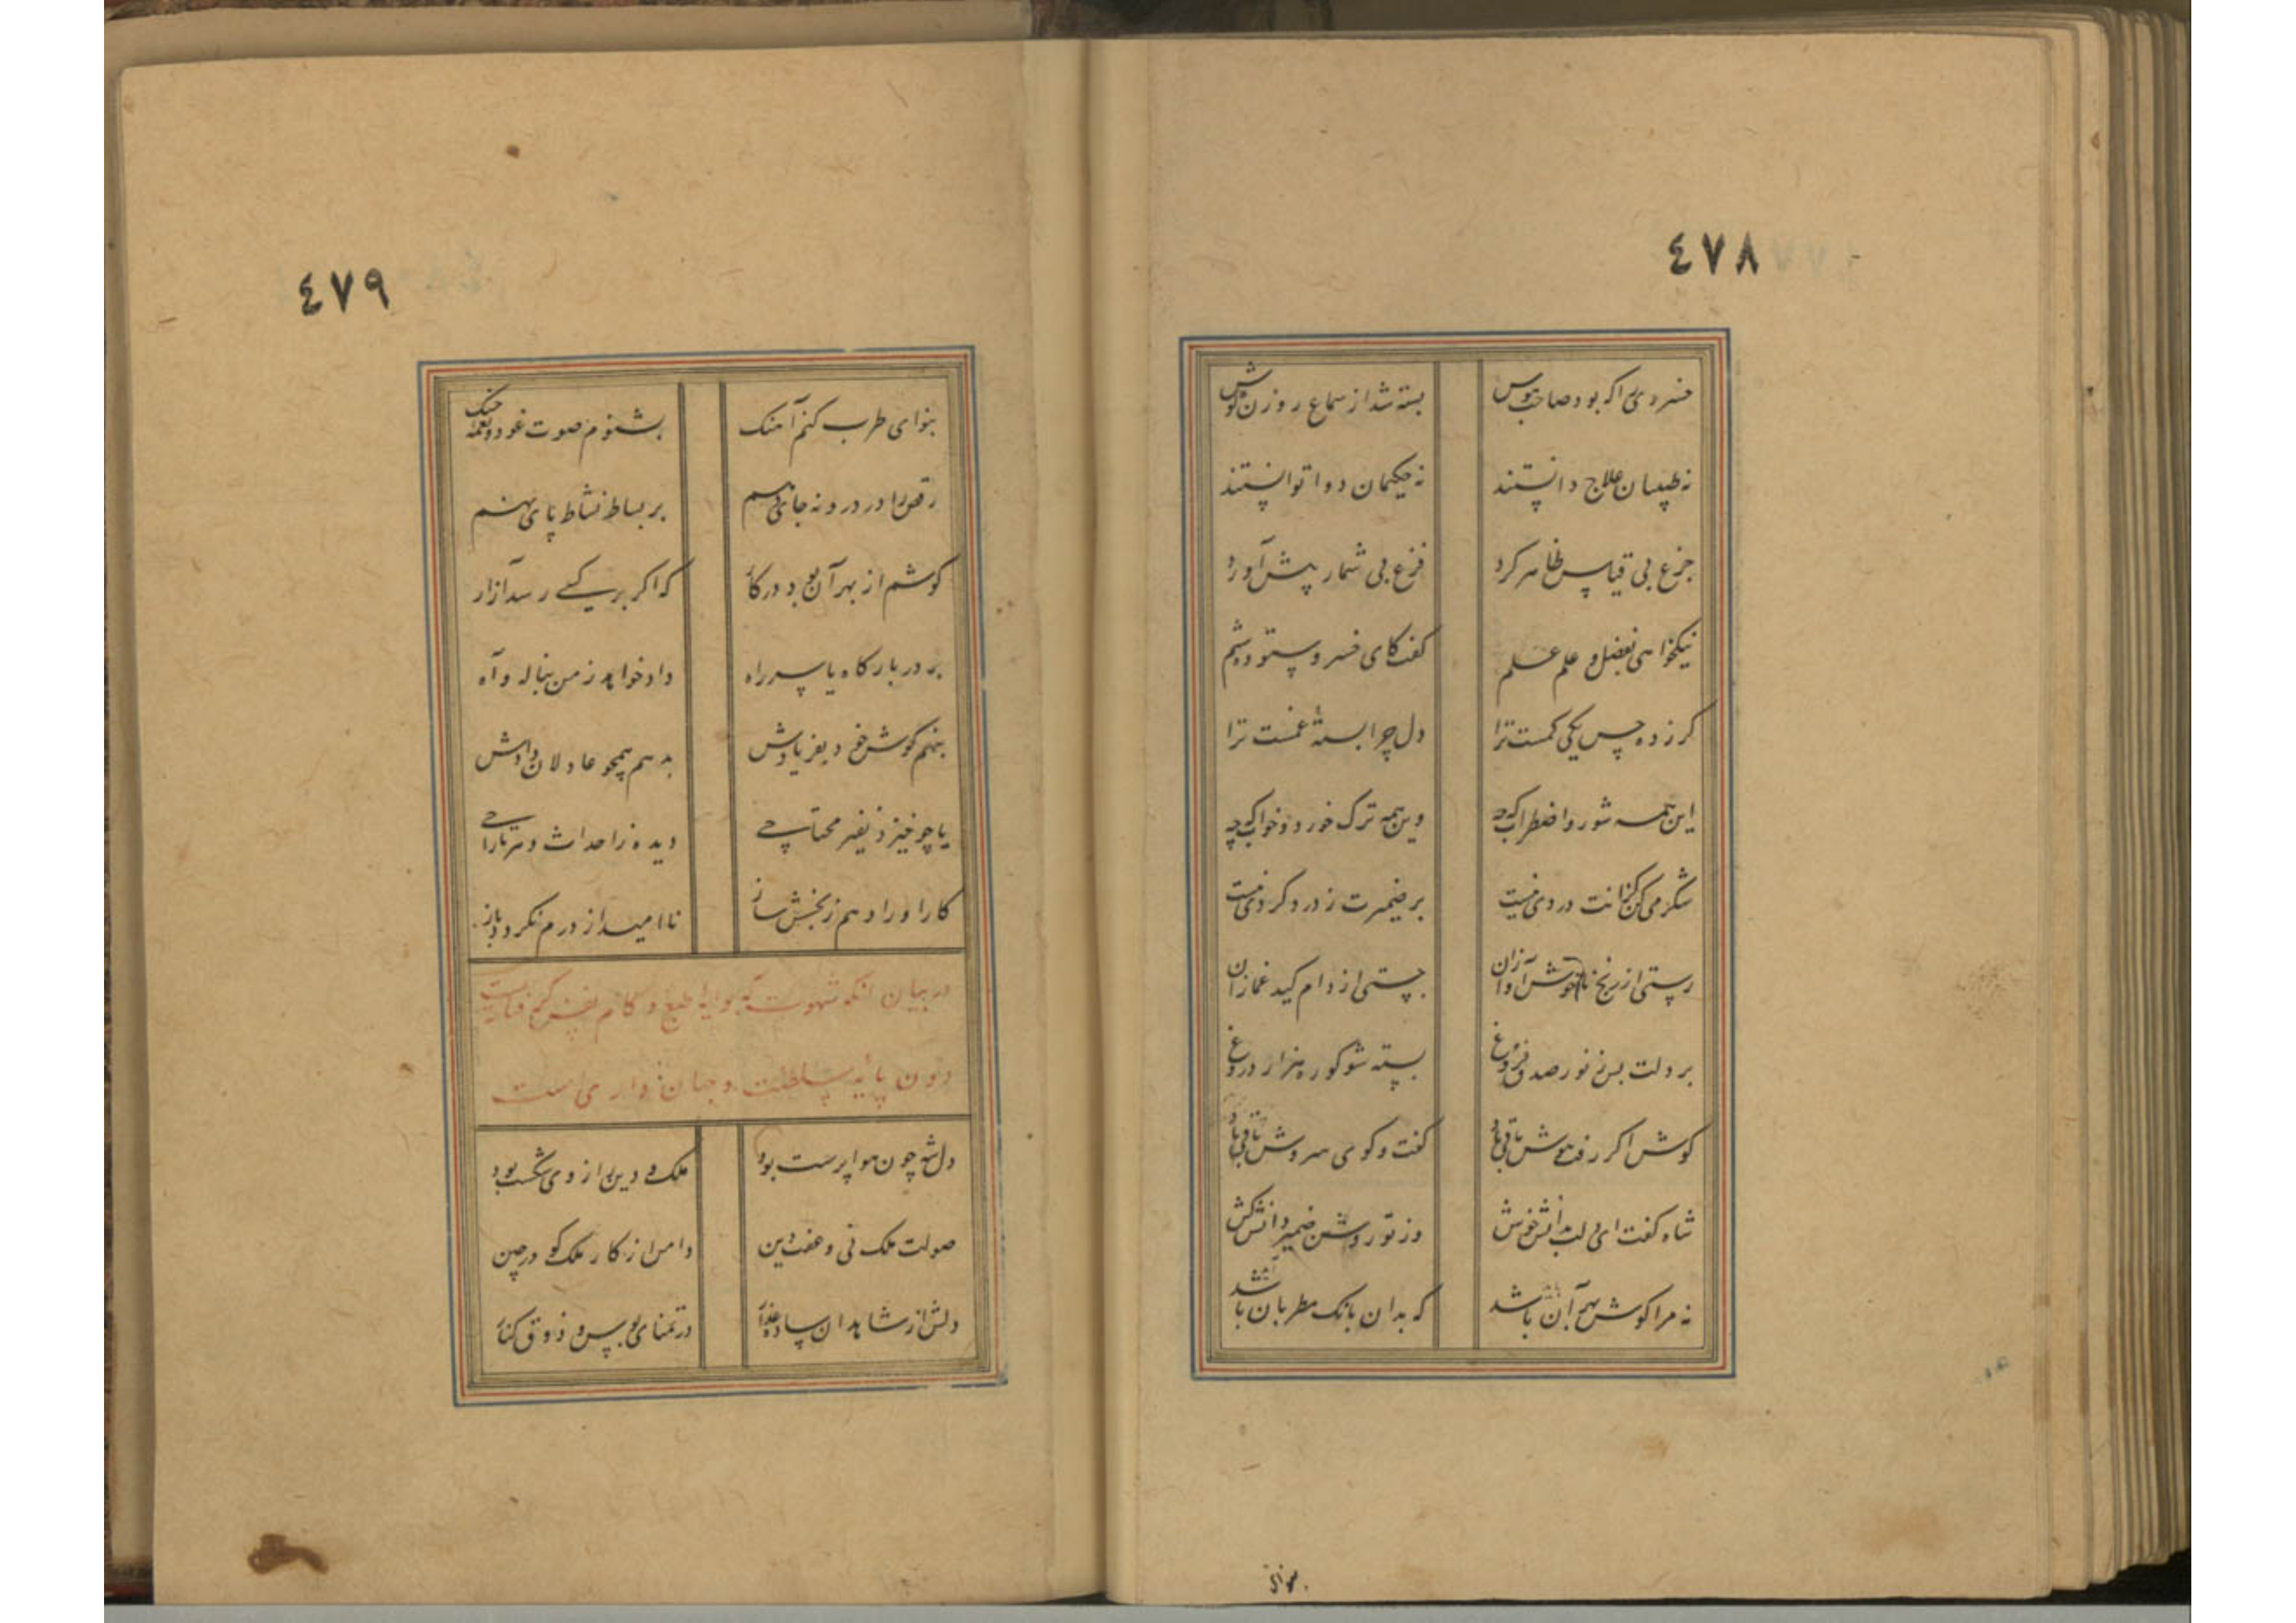 ٤٧٨
خسروی را که بود صاحب هوش بسته شد از سماع روزن گوش
نه طبیبان علاج دانستند نه حکیمان دوا توانستند
جزع بی قیاس ظاهر کرد فزع بی شمار پیش آورد
نیکخواهی بفضل و علم علم گفت کای خسرو ستوده شیم
کر ز ده حس یکی کمست ترا دل چرا بستهٔ غمست ترا
این همه شور و اضطراب که چه وین همه ترک خورد و خواب که چه
شکر می کن کزانت دردی نیست بر ضمیرت ز درد کردی نیست
رستی از رنج ناخوش آوازان جستی از دام کید غمازان
بر دلت بس ز نور صدق فروغ بسته شو کو ره هزار دروغ
کوش اکر رفت هوش باقی باد گفت و کوی سروش باقی باد
شاه کفت ای دلت بدانش خوش وز تو روشن ضمیر دانش کش
نه مرا کوش بهر آن باشد که بدان بانک مطربان باشد
بنوای
٤٧٩
بنوای طرب کنم آهنک بشنوم صوت عود و نغمه چنک
رقص را در درونه جای دهم بر بساط نشاط پای نهم
کوشم از بهر آن بود در کار که اکر بر کسی رسد آزار
بر در بارکاه یا سر راه داد خواهد ز من بناله و آه
بنهم کوش خود بفریادش بدهم همچو عادلان دادش
یا چو خیزد نفیر محتاجی دیده ز احداث دهر تاراجی
کار او را دهم ز بخشش ساز ناامید از درم نکردد باز
در بیان آنکه شهوت که بوایه طبع و کام نفس کرفتاریست
دون پایه سلطنت و جهان داری است
دل شه چون هوا پرست بود ملک و دین را ز وی شکست بود
صولت ملک نی و عفت دین دامن از کار ملک کو درچین
دلش از شاهدان ساده عذار در تمنای بوس و ذوق کنار